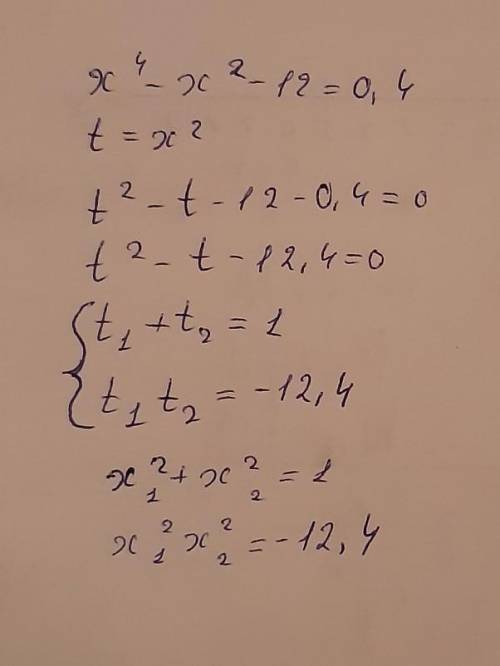 x⁴ - x² - 12 = 0,4
t = x²
t² - t - 12 - 0,4 = 0
t² - t - 12,4 = 0
{ t₁ + t₂ = 1
t₁ t₂ = -12,4
x₁² + x₂² = 1
x₁² x₂² = -12,4